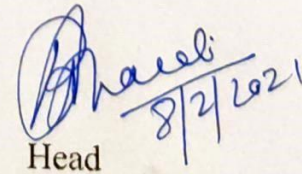 8/2/2021
Head